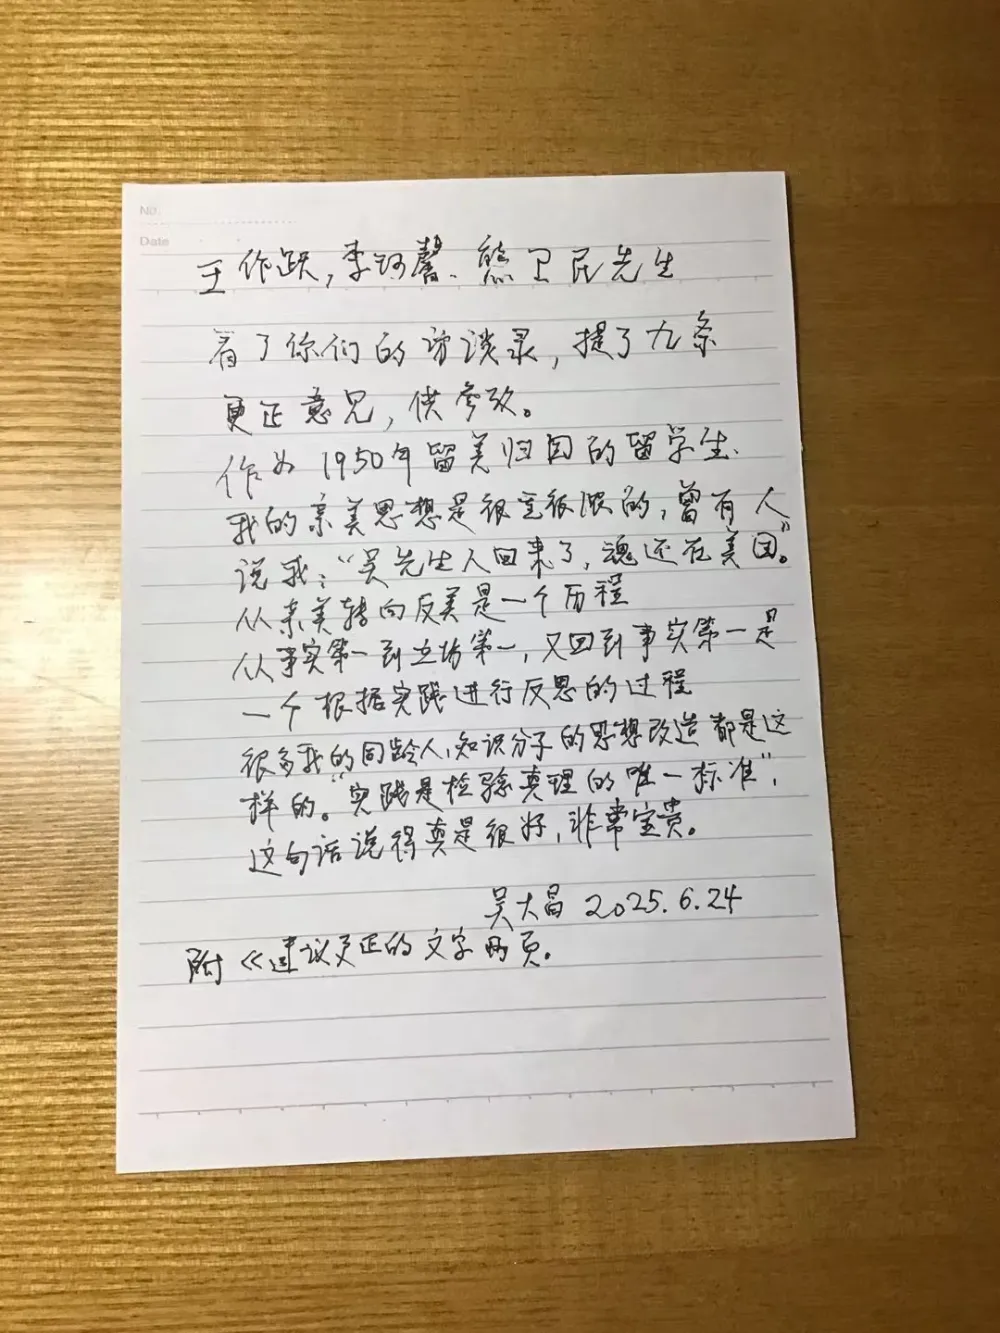 No.
Date
王作跃,李珂馨、熊卫民先生
看了你们的访谈录,提了九条
更正意见,供参考。
作为1950年留美归国的留学生、
我的亲美思想是很重很浓的,曾有人
说我:“吴先生人回来了,魂还在美国。”
从亲美转向反美是一个历程
从事实第一到立场第一,又回到事实第一是
一个根据实践进行反思的过程
很多我的同龄人,知识分子的思想改造都是这
样的。“实践是检验真理的唯一标准”,
这句话说得真是很好,非常宝贵。
吴大昌 2025.6.24
附《建议更正的文字两页。